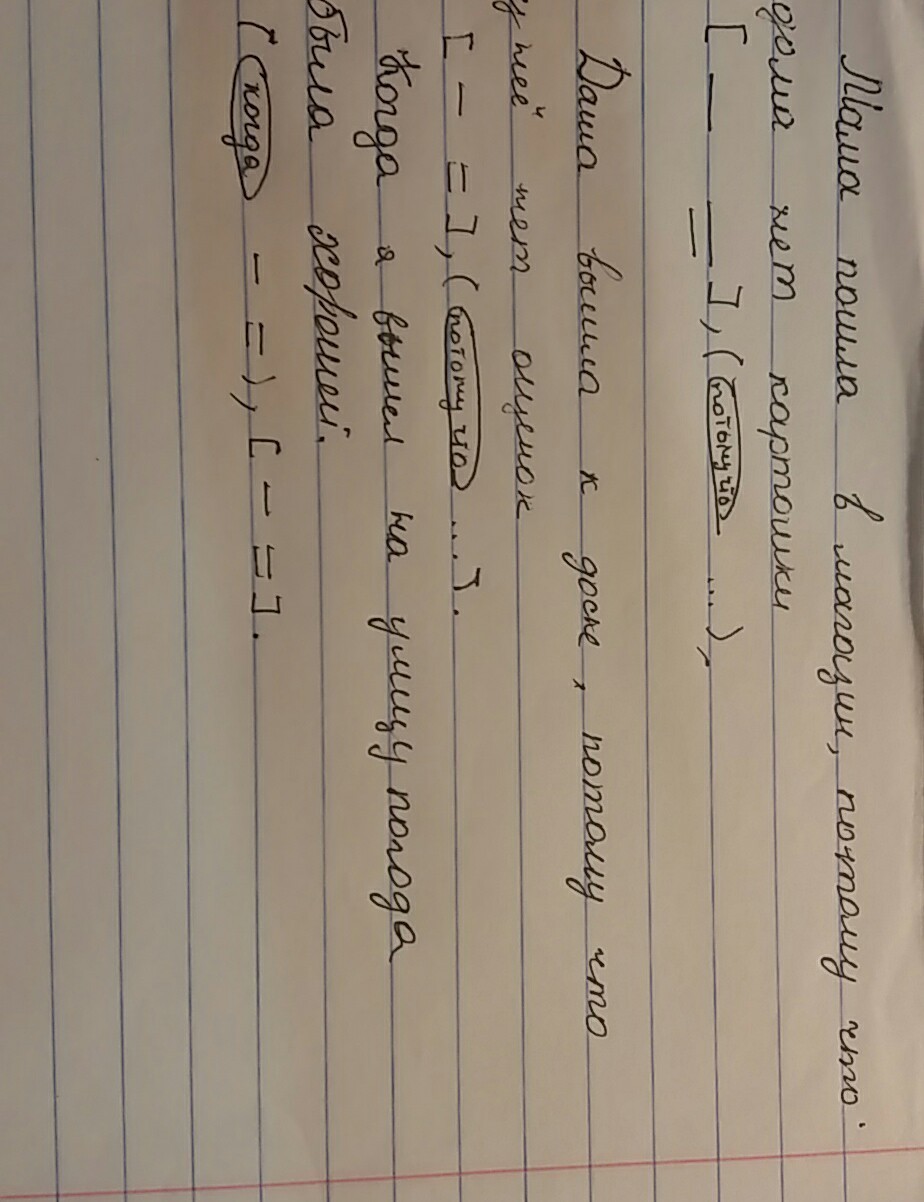 Мама пошла в магазин, потому что
дома нет картошки
[ — = ], (потому что ...),
Даша вышла к доске, потому что
у неё нет оценок
[ - = ], (потому что ...).
Когда я вышел на улицу погода
была хорошей.
(когда - = ), [ - = ].